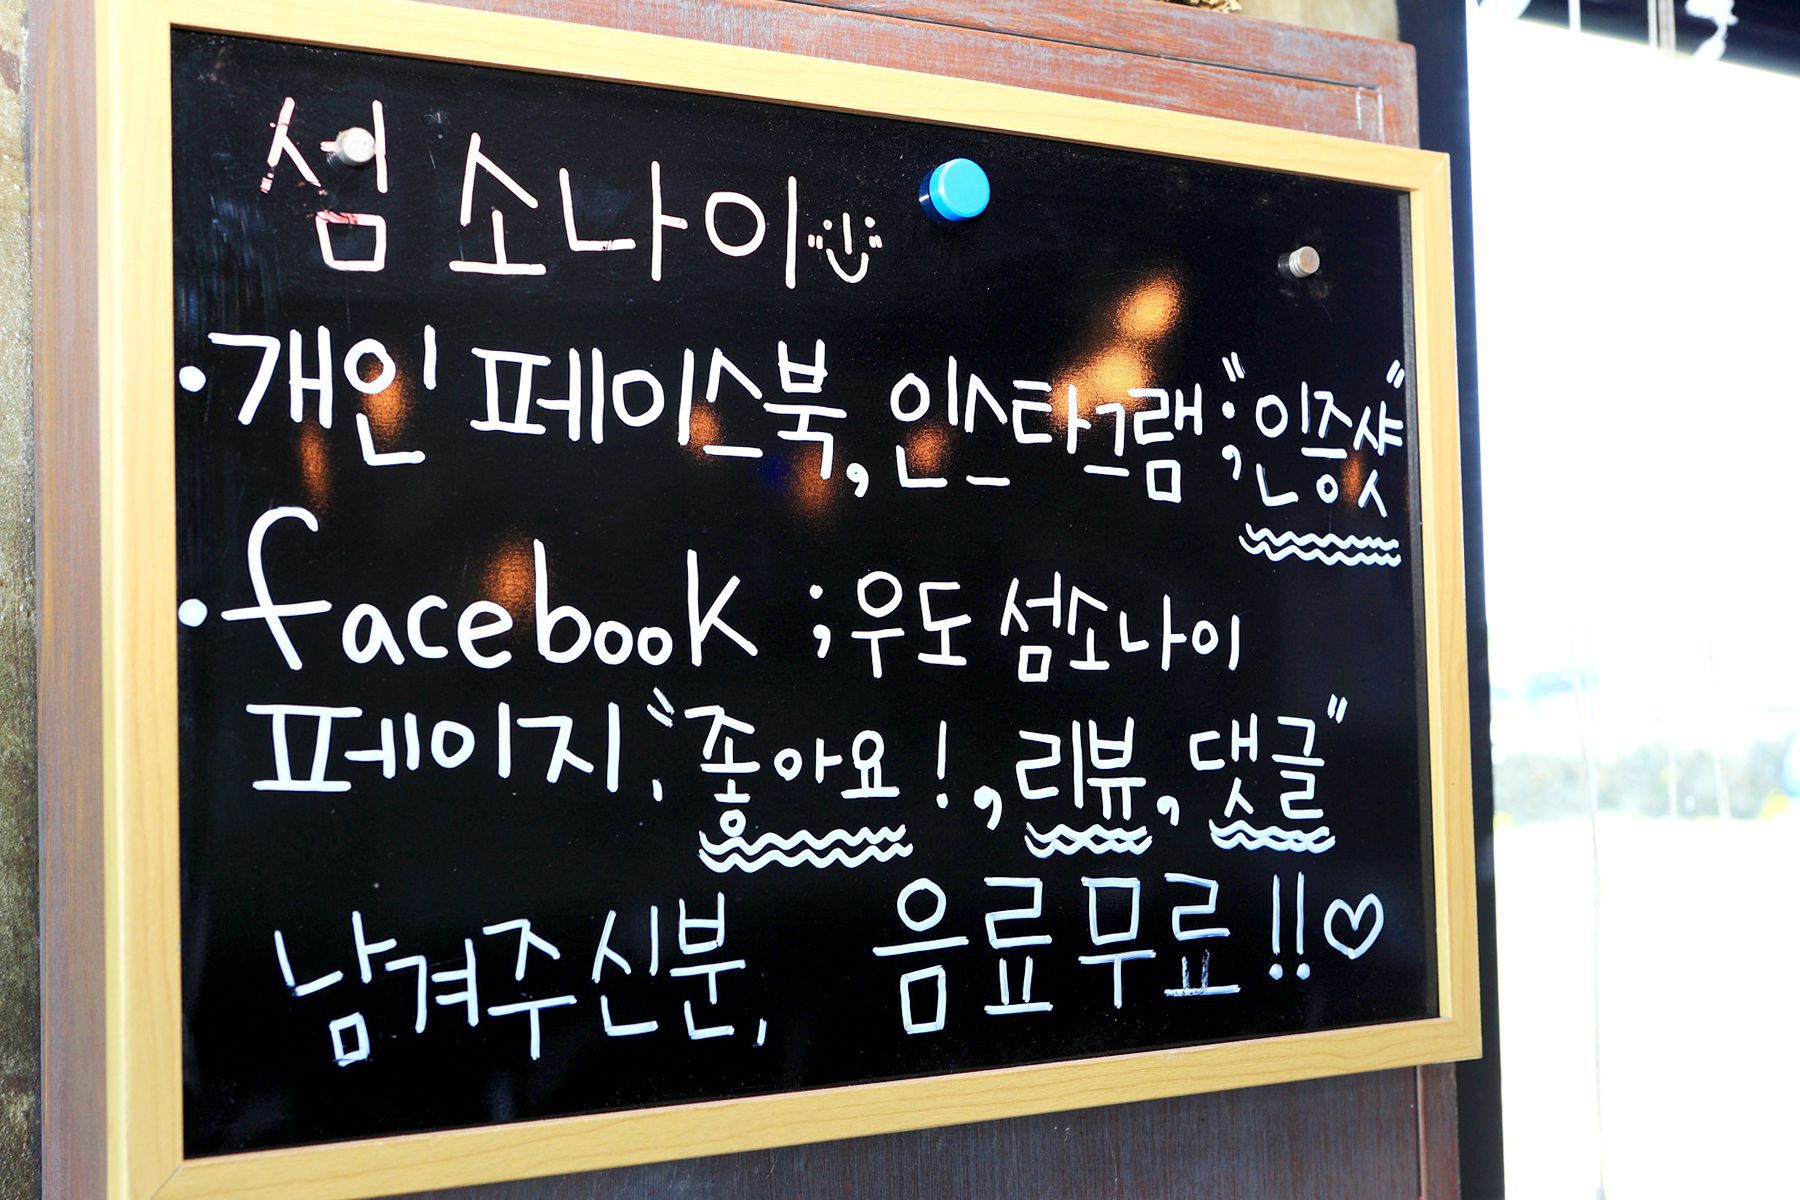 섬 소나이
• 개인 페이스북, 인스타그램 ; "인증샷"
• facebook ; 우도 섬소나이
페이지, "좋아요!, 리뷰, 댓글"
남겨주신분, 음료무료!!♡